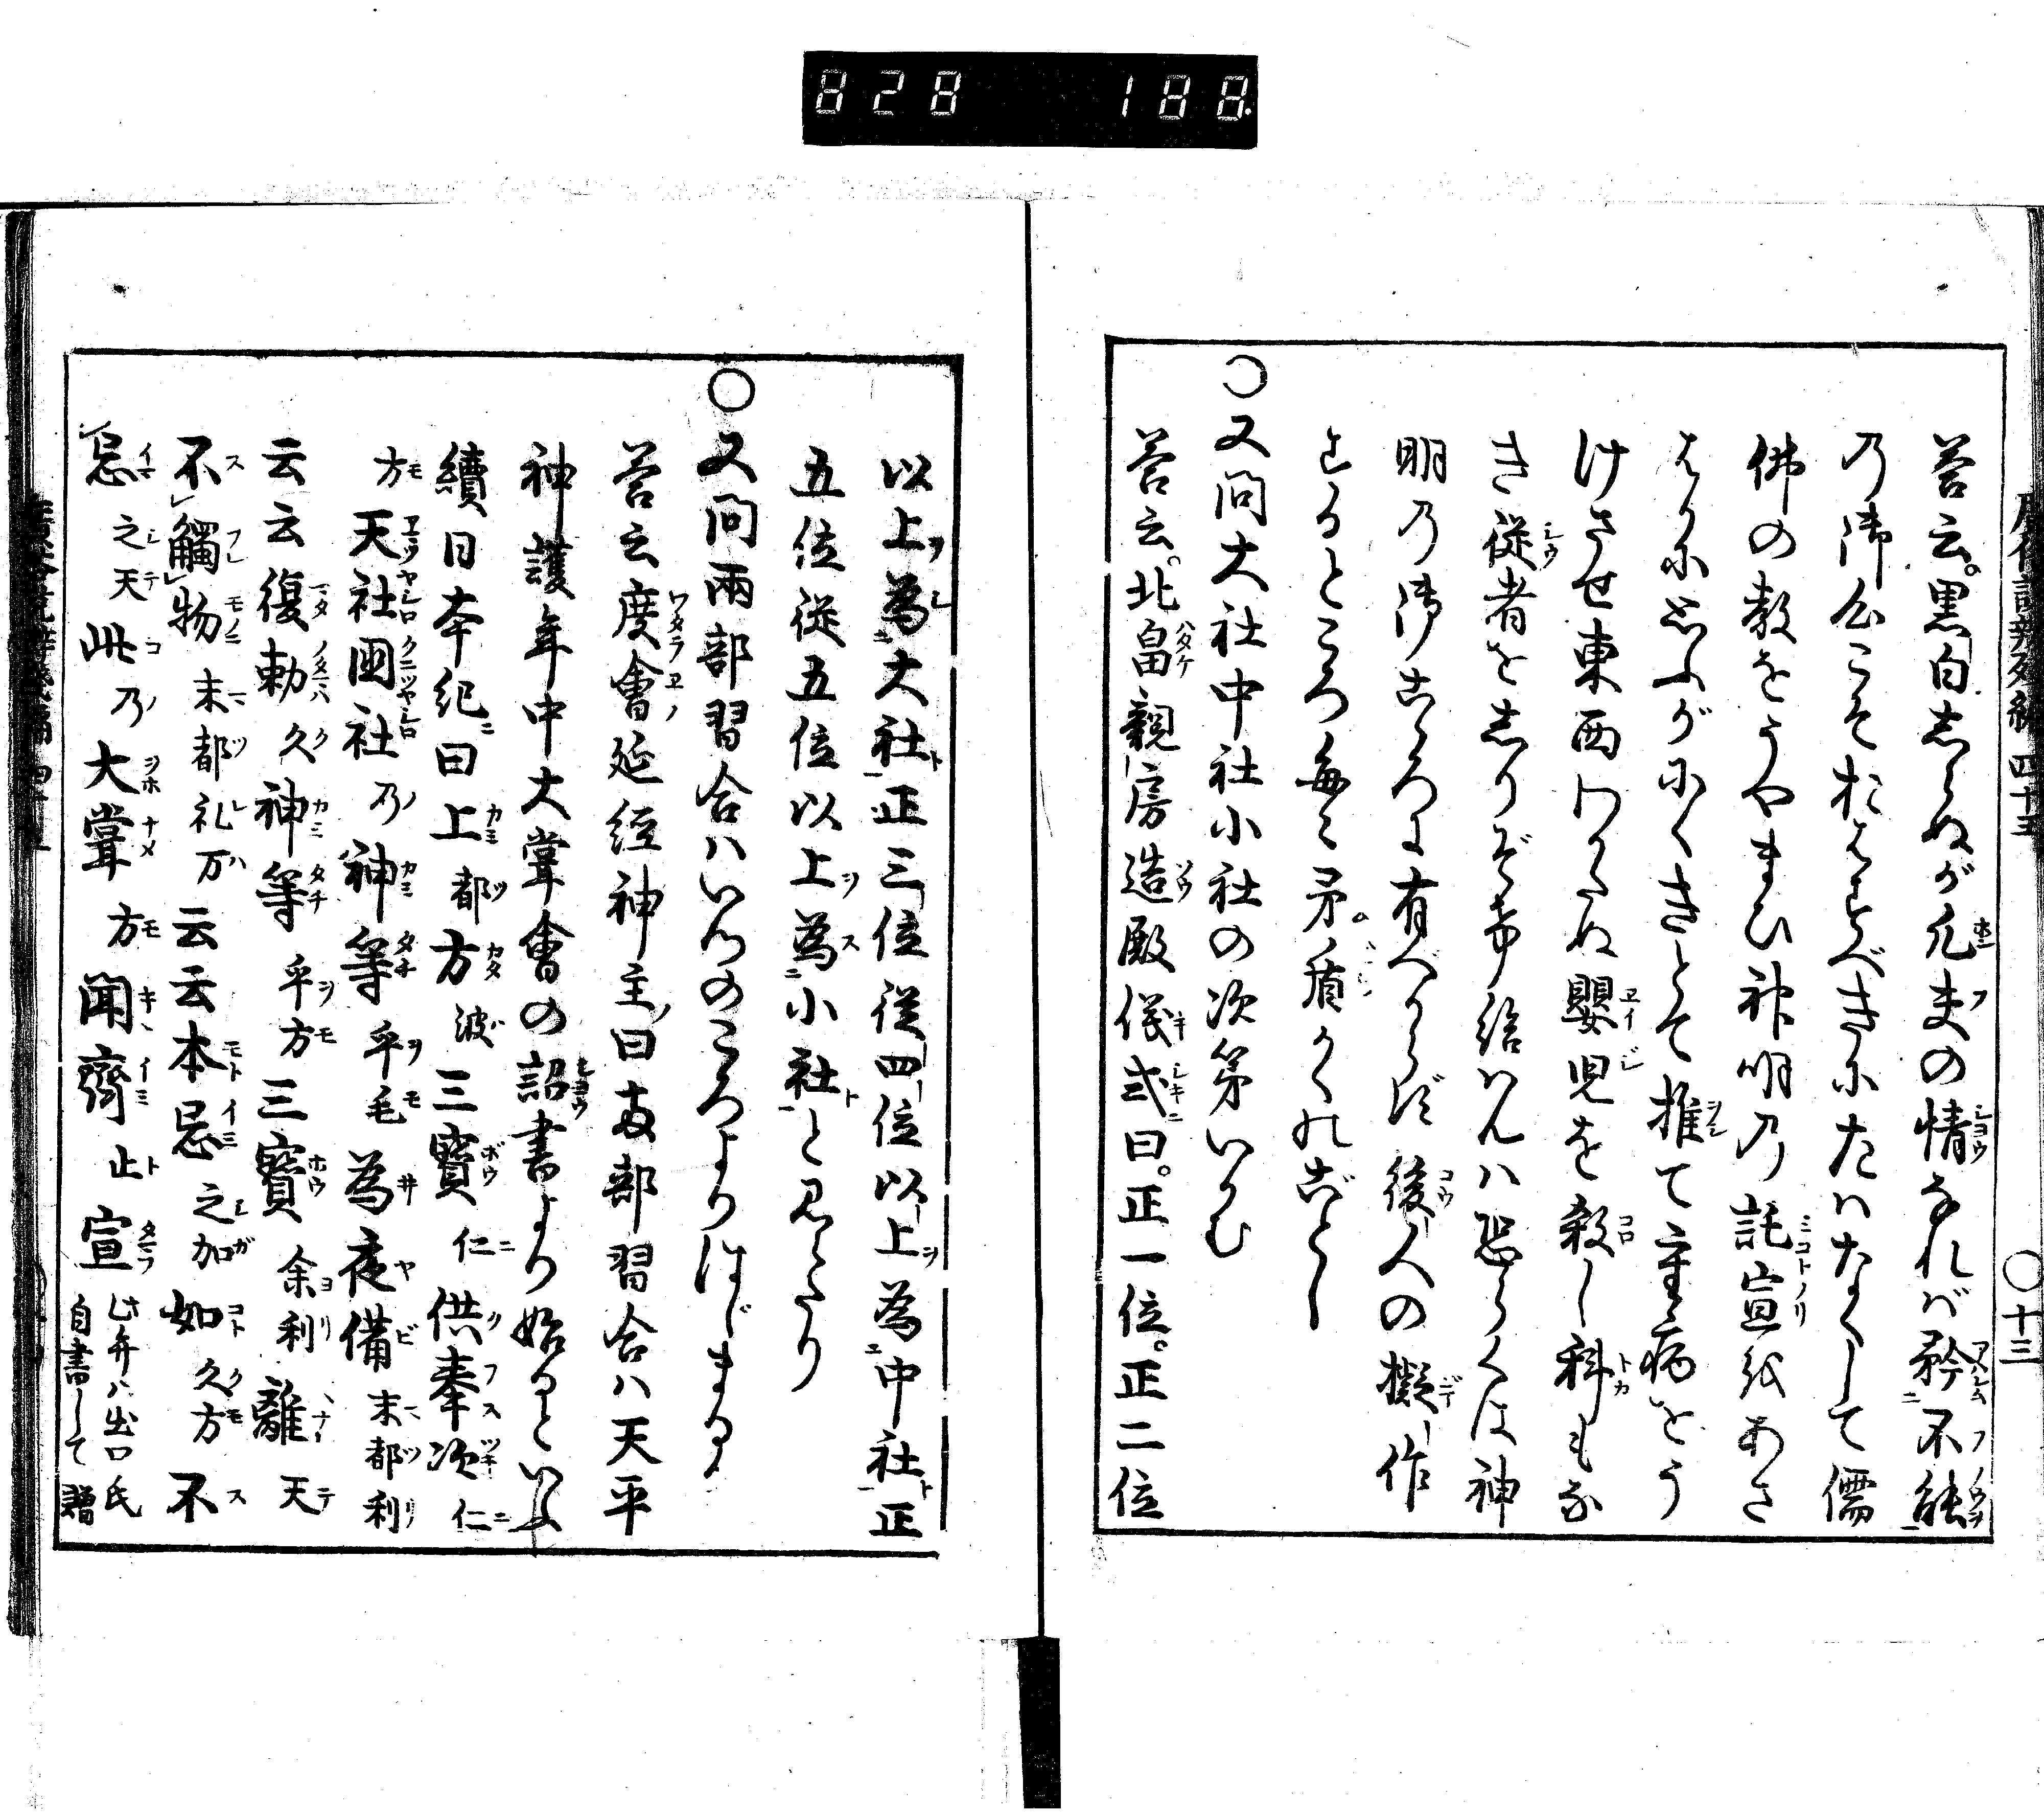 828 188
廣益俗説辨残編 四十五 〇十三
答云。黒白志らぬが凡夫の情なれば矜不能
乃御心こそおはすべきにたハなくして儒
佛の教をうやまひ神明乃託宣をあさ
はりに思ふがにくきとて推て重病をう
けさせ東西わかぬ嬰児を殺し科もな
き従者をしりぞけ給ハんハ恐らくは神
明乃御心に有べからず後人の擬作
するところ毎に矛盾かくれなし
〇又問大社中社小社の次第いかむ
答云。北畠親房造殿儀式曰。正一位。正二位
以上為大社正三位従四位以上為中社正
五位従五位以上為小社と見えたり
〇又問兩部習合ハいつのころよりはじまる
答云度會延経神主曰兩部習合ハ天平
神護年中大甞會の詔書より始るといふ
續日本紀曰上都方波三寶仁供奉次仁
方天社國社乃神等乎毛為夜備末都利
云云復勅久神等乎方三寶余利離天
不觸物末都礼方云云本忌之加如久方不
忌之天此乃大甞方聞齊止宣 此弁ハ出口氏
自書して贈